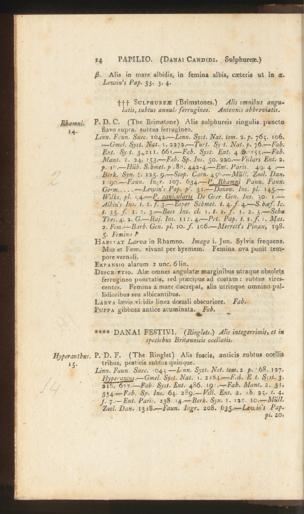 14 PAPILIO. (DANAI CANDIDI. Sulphureæ.)
β. Alis in mare albidis, in femina albis, cæteris ut in α.
Lewin's Pap. 33. 3. 4.
††† SULPHUREÆ (Brimstones.) Alis omnibus angu-
latis, subtus annul. ferrugineo. Antennis abbreviatis.
Rhamni. P. D. C. (The Brimstone) Alis sulphureis singulis puncto
14. flavo supra, subtus ferrugineo.
Linn. Faun. Suec. 1042.—Linn. Syst. Nat. tom. 2. p. 765. 106.
—Gmel. Syst. Nat. 1. 2272.—Turt. Syst. Nat. p. 76.—Fab.
Ent. Syst. 3. 211. 661.—Fab. Syst. Ent. 478. 151.—Fab.
Mant. 2. 24. 253.—Fab. Sp. Ins. 50. 220.—Villars Ent. 2.
p. 12.—Hüb. Schmet. p. 88. 442-4.—Ent. Paris. 494. 4.—
Berk. Syn. 1. 125. 9.—Scop. Carn. 450.—Müll. Zool. Dan.
1290.—Faun. Ingr. 207. 634.—P. Rhamni Faun.
Germ. —Lewin's Pap. p. 31.—Donov. Ins. pl. 145.—
Wilks, pl. 14.—P. canicularis De Geer Gen. Ins. 30. 1.—
Albin's Ins. t. 2. f. 3.—Esper Schmet. t. 4. f. 4.—Schæf. Ic.
t. 35. f. 1. 2. 3.—Berl Ins. cl. 1. t. 2. f. 1. 2. 3.—Seba
Thes. 4. 2. G.—Raj. Ins. 112. 4.—Pet. Pap. t. 1. f. 1. Mas.
2. Fem.—Barb. Gen. pl. 10. f. 106.—Merrett's Pinax, 198.
5. Femina?
HABITAT Larva in Rhamno. Imago i. Jun. Sylvis frequens.
Mas et Fem. vivunt per hyemem. Femina ova punit tem-
pore vernali.
EXPANSIO alarum 2 unc. 6 lin.
DESCRIPTIO. Alæ omnes angulatæ marginibus utraque obsoletè
ferrugineo punctatis, sed præcipue ad costam: subtus vires-
centes. Femina a mare discrepat, alis utrinque omnino pal-
lidioribus seu albicantibus.
LARVA lævis viridis linea dorsali obscuriore. Fab.
PUPPA gibbosa antice acuminata. Fab.
**** DANAI FESTIVI. (Ringlets.) Alis integerrimis, et in
speciebus Britannicis ocellatis.
Hyperanthus. P. D. F. (The Ringlet) Alis fuscis, anticis subtus ocellis
15. tribus, posticis subtus quinque.
Linn. Faun. Suec. 1043.—Linn. Syst. Nat. tom. 2. p. 768. 127.
Hyperantus.—Gmel. Syst. Nat. 1. 2284.—Fab. E. t. Syst. 3.
216. 677.—Fab. Syst. Ent. 486. 191.—Fab. Mant. 2. 31.
334.—Fab. Sp. Ins. 64. 289.—Vill. Ent. 2. 18. 25. t. 4.
f. 7.—Ent. Paris. 238. 14.—Berk. Syn. 1. 125. 10.—Müll.
Zool. Dan. 1318.—Faun. Ingr. 208. 635.—Lewin's Pap.
pl. 20.